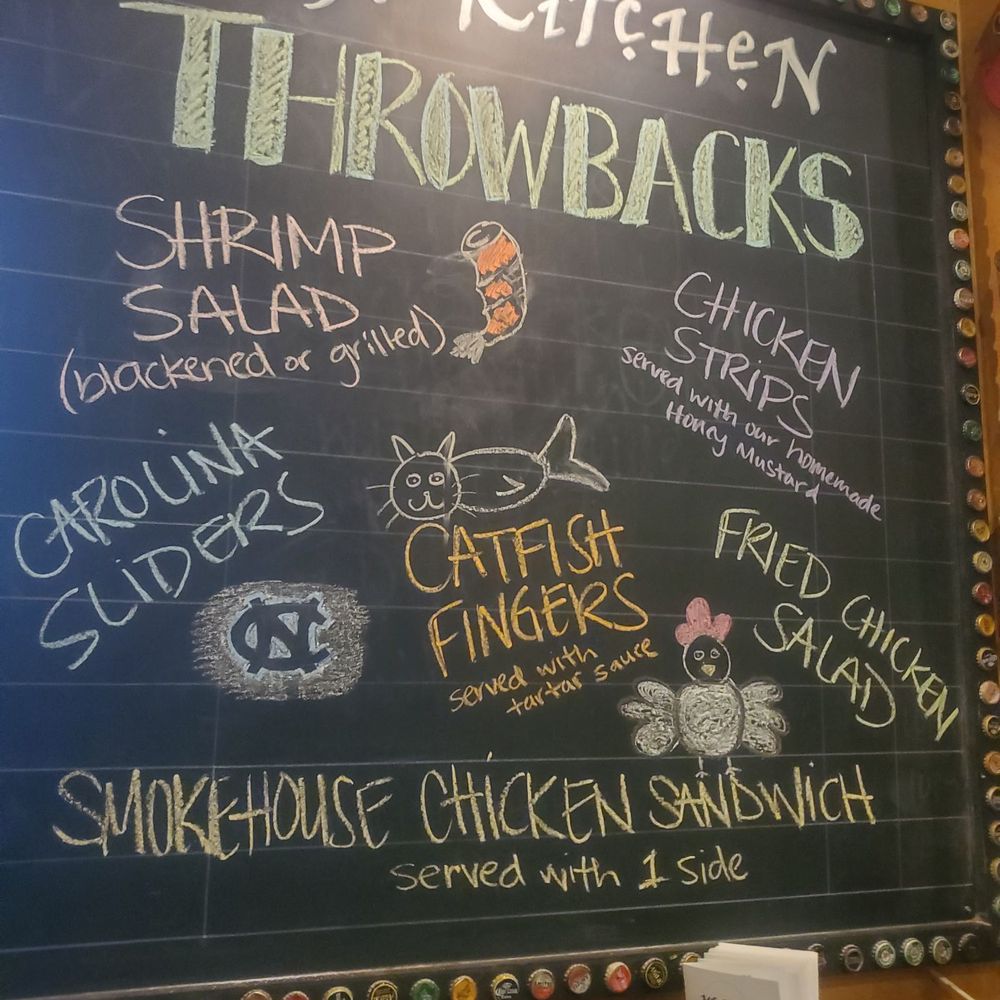 KiTcHeN
THROWBACKS
SHRIMP
SALAD
(blackened or grilled)
CHICKEN
STRIPS
served with our homemade
Honey Mustard
CAROLINA
SLIDERS
NC
CATFISH
FINGERS
served with
tartar sauce
FRIED CHICKEN
SALAD
SMOKEHOUSE CHICKEN SANDWICH
served with 1 side